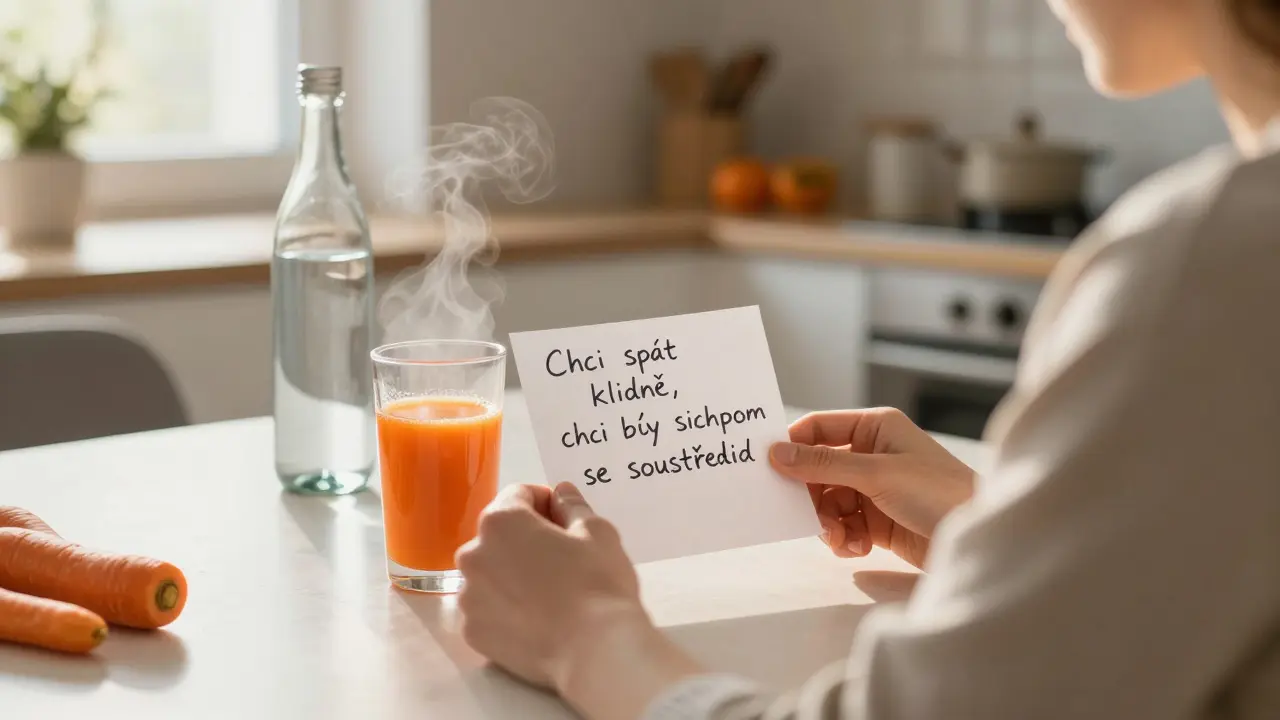 Chci spát
klidně,
chci bíy sichpom
se soustředid